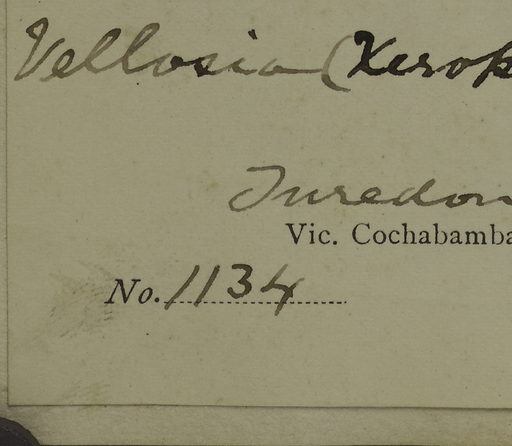 Vellosia (Xerop
Turedon
Vic. Cochabamba
No. 1134